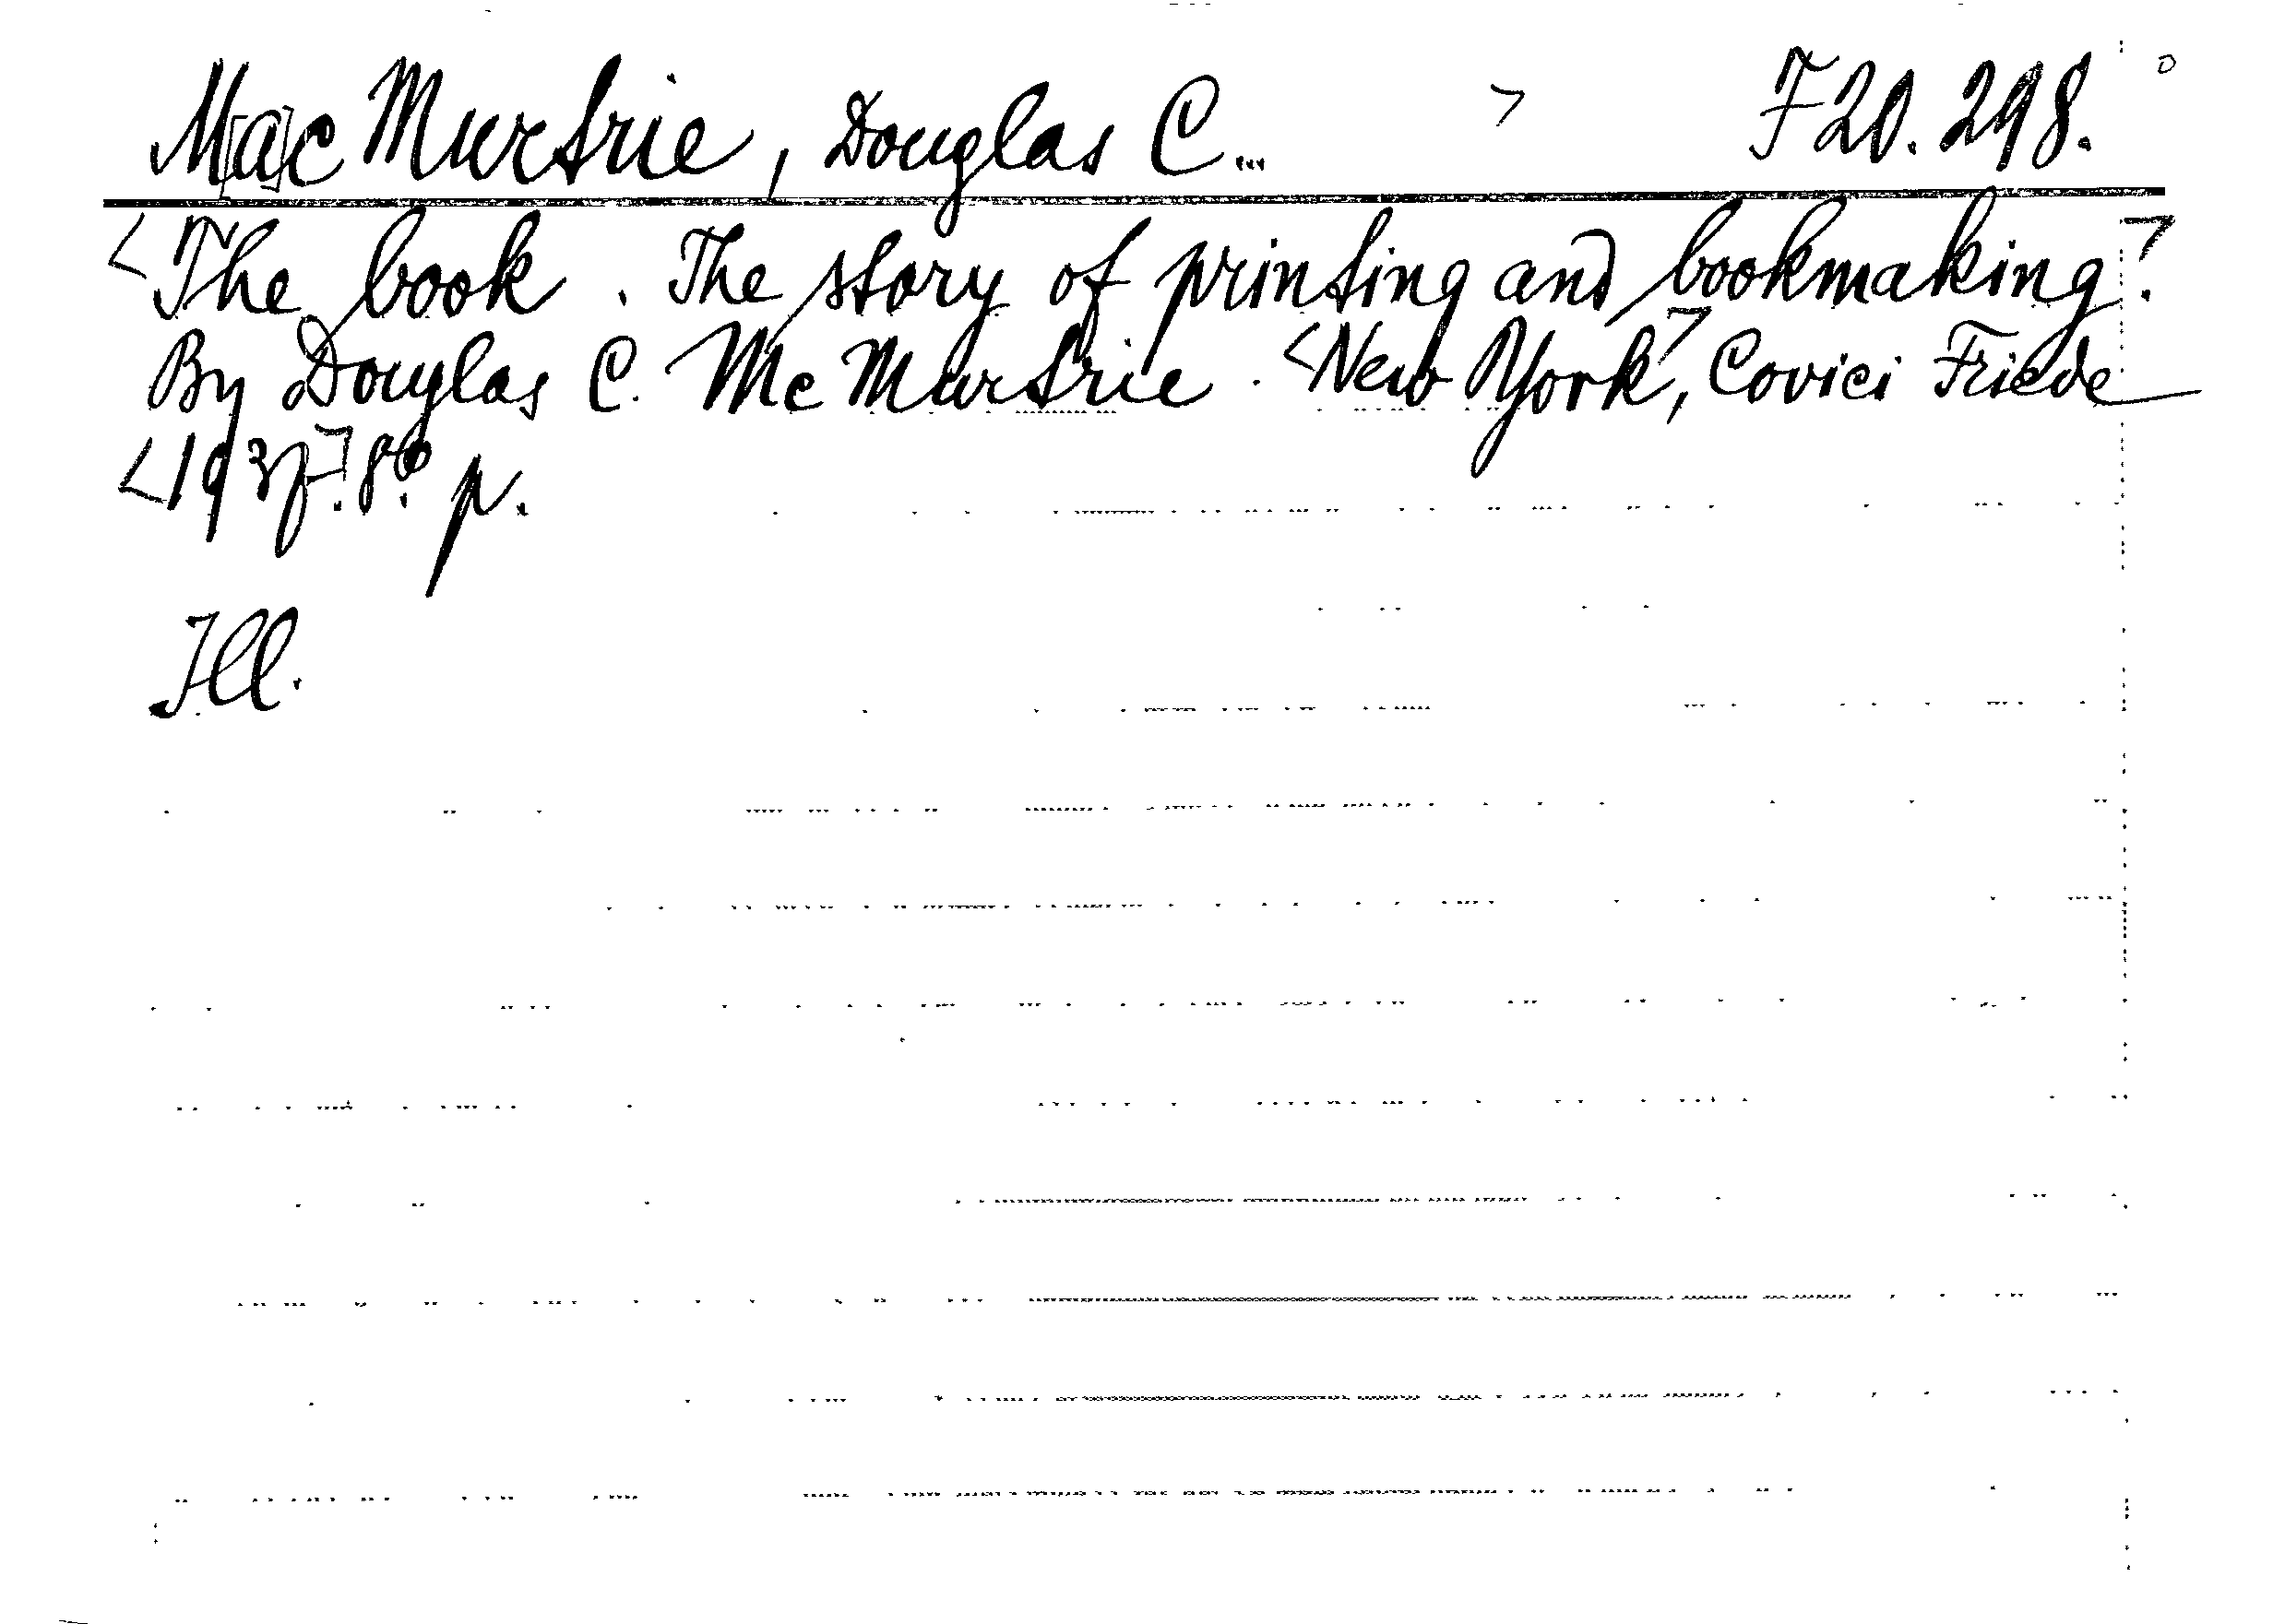 M[a]c Murtrie, Douglas C... > F 20.298.
<The book. The story of printing and bookmaking>.
By Douglas C. Mc Murtrie. <New York>, Covici Friede
<1937>. 8° p.
Ill.